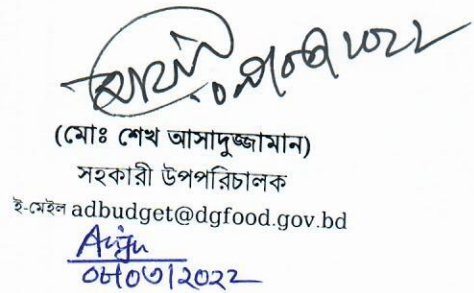 (মোঃ শেখ আসাদুজ্জামান)
সহকারী উপপরিচালক
ই-মেইল adbudget@dgfood.gov.bd
০৮/০৩/২০২২